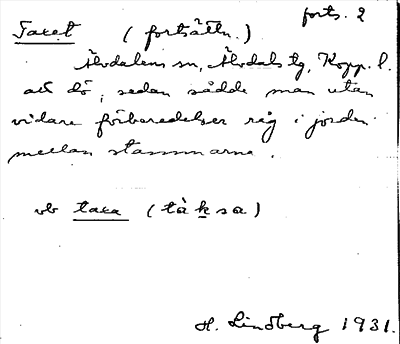 forts. 2
Taxet (fortsättn.)
Älvdalens sn, Älvdals tg, Kopp. l.
att dö; sedan sådde man utan
vidare förberedelser råg i jorden
mellan stammarna.
vb taxa (tàksa)
H. Lindberg 1931.